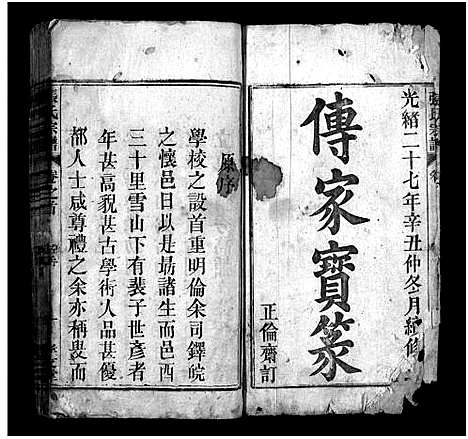 光緒二十七年辛丑仲冬月續修
傳家寶篆
正倫齋訂
原序
學校之設首重明倫余司鐸皖
之懷邑日以是勗諸生而邑西
三十里雪山下有裴子世彥者
年甚高貌甚古學術人品甚優
都人士咸尊禮之余亦稱叟而